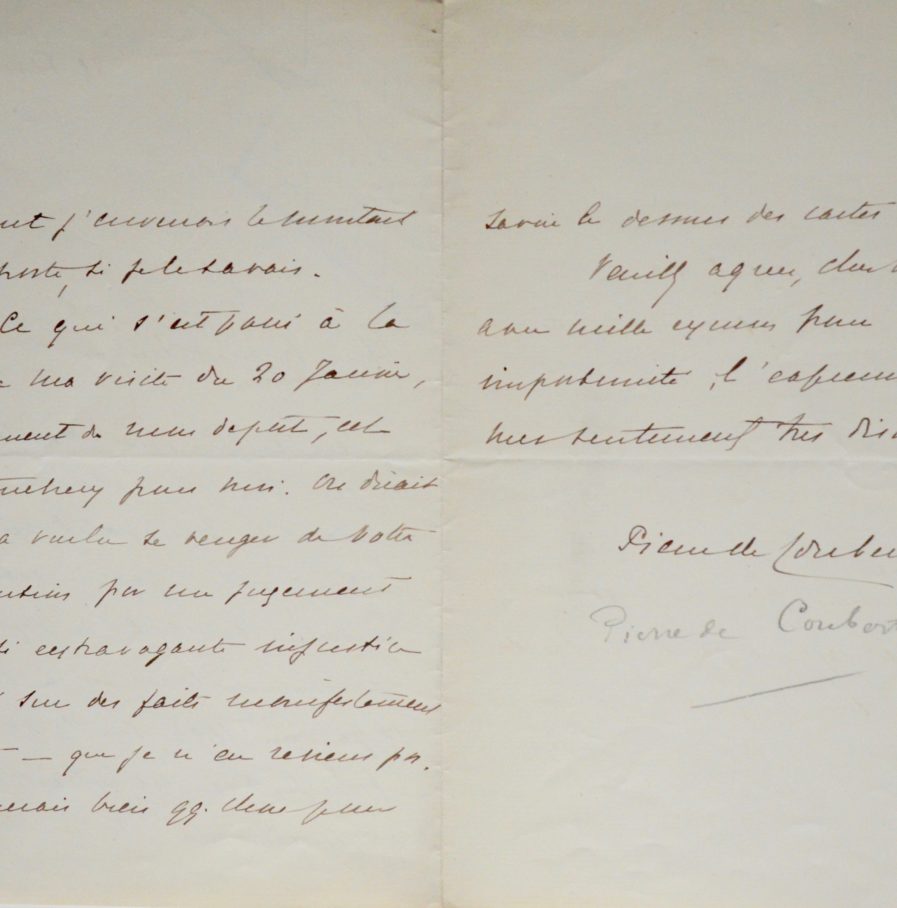 j'enverrais le montant
poste, si je le savais.
Ce qui s'est passé à la
ma visite du 20 Janvier,
ment de nous depuis, est
pour moi. On dirait
a voulu se venger de votre
par un jugement
si extravagante injustice
sur des faits manifestement
— que je n'en reviens pas.
bien qq. chose pour
savoir le dessous des cartes
Veuillez agréer, cher
avec mille excuses pour
importunité, l'
mes sentiments très dis
Pierre de Couber
Pierre de Coubert